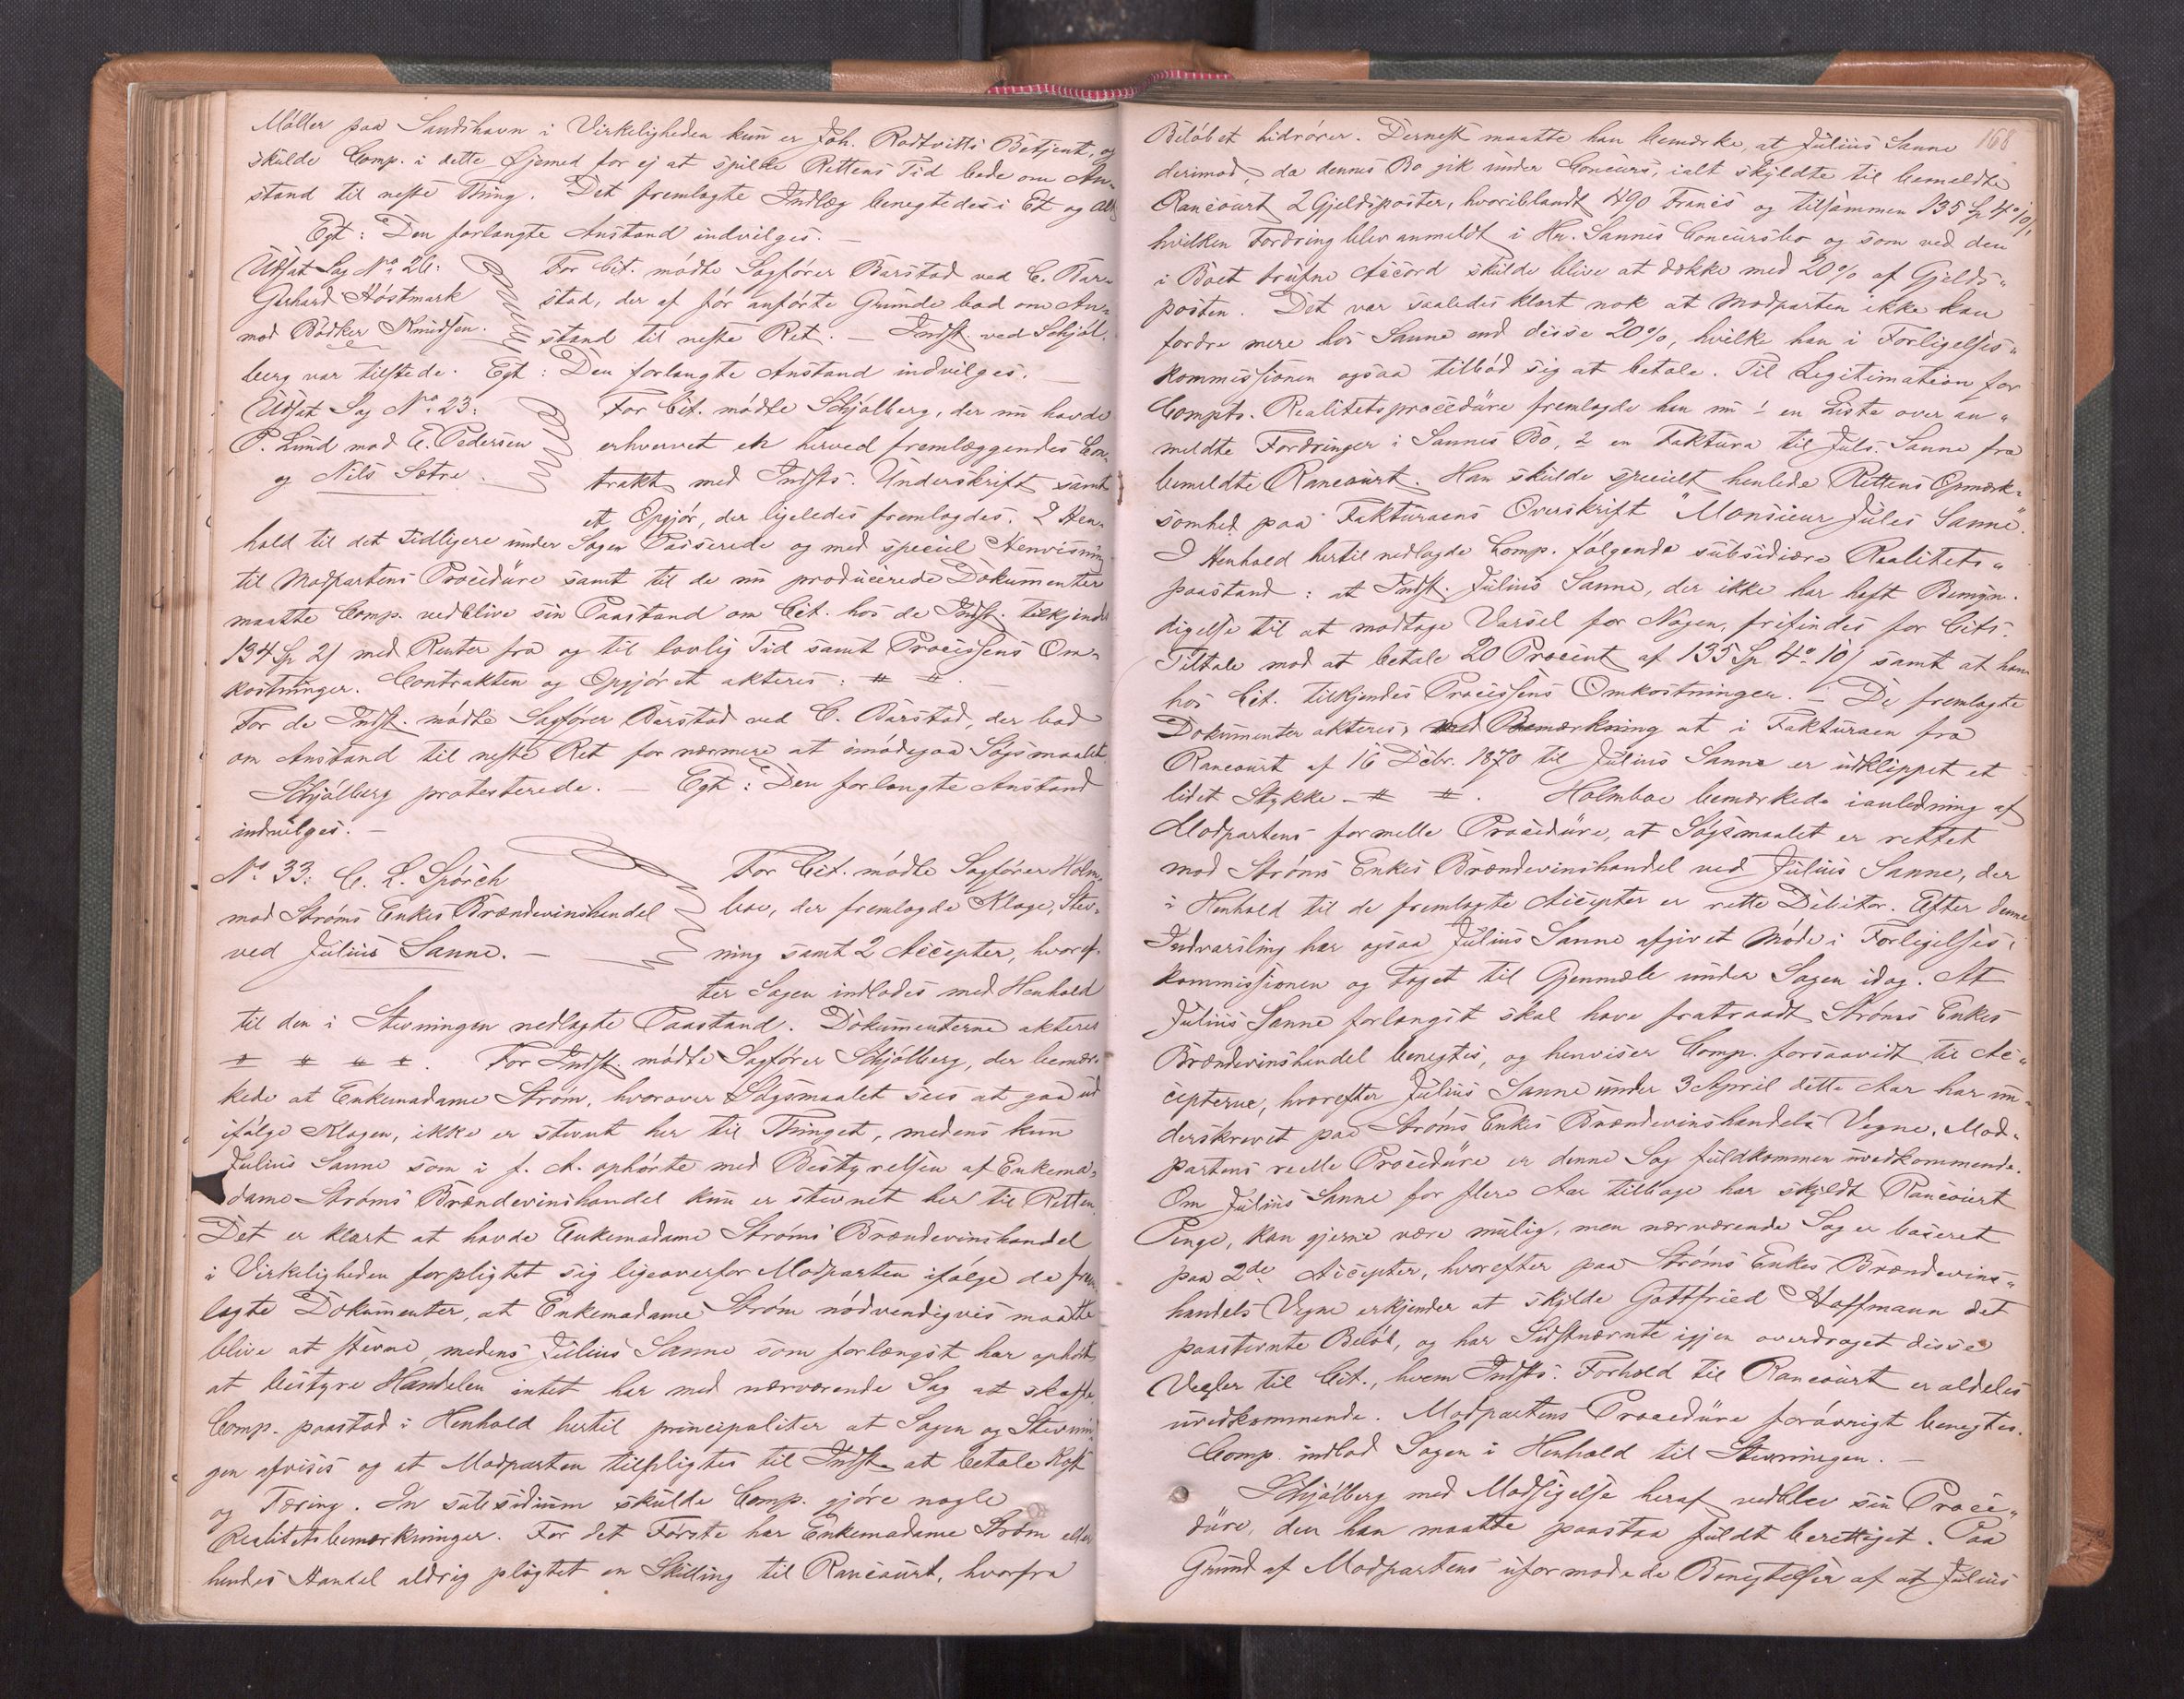 Møller paa Sandshavn i Virkeligheden kun er Joh. Rødtvitts Betjent, og
skulde Comp. i dette Øjemed for ej at spilde Rettens Tid bede om An-
stand til neste Thing. Det fremlagte Indlæg benegtedes i Et og Alt
Egt: Den forlangte Anstand indvilges. —
Udsat Sag No. 26:
Gerhard Høstmark
mod Bødker Knudsen.
For Cit. mødte Sagfører Barstad ved C. Bar-
stad, der af før anførte Grunde bad om An-
stand til neste Ret. — Indst. ved Schjøl-
berg var tilstede. Egt: Den forlangte Anstand indvilges. —
Udsat Sag No. 23:
P. Lund mod E. Pedersen
og Nils Sætre.
For Cit. mødte Schjølberg, der nu havde
erhvervet en herved fremlæggendes Con-
trakt med Indsts. Underskrift samt
et Opgjør, der ligeledes fremlagdes. I Hen-
hold til det tidligere under Sagen Passerede og med speciel Henvisning
til Modpartens Procedüre samt til de nu producerede Dokumenter
maatte Comp. vedblive sin Paastand om Cit. hos de Indst. tilkjendt
134 Sp 21 med Renter fra og til lovlig Tid samt Processens Om-
kostninger. Contrakten og Opgjøret akteres: # # . —
For de Indst. mødte Sagfører Barstad ved C. Barstad, der bad
om Anstand til neste Ret for nærmere at imødegaa Søgsmaalet.
Schjølberg protesterede. — Egt: Den forlangte Anstand
indvilges. —
No. 33: C. L. Spørch
mod Strøms Enkes Brændevinshandel
ved Julius Sanne. —
For Cit. mødte Sagfører Holm-
boe, der fremlagde Klage, Stev-
ning samt 2 Accepter, hvoref-
ter Sagen indlodes med Henhold
til den i Stevningen nedlagte Paastand. Dokumenterne akteres
# # # # . For Indst. mødte Sagfører Schjølberg, der bemær-
kede at Enkemadame Strøm, hvorover Søgsmaalet sees at gaa ud
ifølge Klagen, ikke er stevnt her til Thinget, medens kun
Julius Sanne som i f. A. ophørte med Bestyrelsen af Enkema-
dame Strøms Brændevinshandel kun er stevnet her til Retten.
Det er klart at havde Enkemadame Strøms Brændevinshandel
i Virkeligheden forpligtet sig ligeoverfor Modparten ifølge de frem-
lagte Dokumenter, at Enkemadame Strøm nødvendigvis maatte
blive at stevne, medens Julius Sanne som forlængst har ophørt
at bestyre Handelen intet har med nærværende Sag at skaffe.
Comp. paastod i Henhold hertil principaliter at Sagen og Stevnin-
gen afvises og at Modparten tilpligtes til Indst. at betale Kost
og Tæring. In subsidium skulde Comp. gjøre nogle
Realitetsbemærkninger. For det Første har Enkemadame Strøm eller
hendes Handel aldrig pligtet en Skilling til Rancourt, hvorfra
168
Beløbet hidrører. Dernest maatte han bemærke, at Julius Sanne
derimod, da dennes Bo gik under Concurs, ialt skyldte til bemeldte
Rancourt 2 Gjeldsposter, hvoriblandt 490 Francs og tilsammen 135 Sp 4o 10/,
hvilken Fordring blev anmeldt i Hr. Sannes Concursbo og som ved den
i Boet trufne Accord skulde blive at dække med 20% af Gjelds-
posten. Det var saaledes klart nok at Modparten ikke kan
fordre mere hos Sanne end disse 20%, hvilke han i Forligelses-
kommissionen ogsaa tilbød sig at betale. Til Legitimation for
Compts. Realitetsprocedüre fremlagde han nu 1 en Liste over an-
meldte Fordringer i Sannes Bo, 2 en Faktura til Juls. Sanne fra
bemeldte Rancourt. Han skulde specielt henlede Rettens Opmærk-
somhed paa Fakturaens Overskrift "Monsieur Jules Sanne".
I Henhold hertil nedlagde Comp. følgende subsidiære Realitets-
paastand: at Indst. Julius Sanne, der ikke har haft Bemyn-
digelse til at modtage Varsel for Nogen, frifindes for Cits.
Tiltale mod at betale 20 Procent af 135 Sp 4o 10/ samt at ham
hos Cit. tilkjendes Processens Omkostninger. — De fremlagte
Dokumenter akteres, med Bemærkning at i Fakturaen fra
Rancourt af 16 Decbr. 1870 til Julius Sanne er udklippet et
lidet Stykke - # # . Holmboe bemærkede ianledning af
Modpartens formelle Procedüre, at Søgsmaalet er rettet
mod Strøms Enkes Brændevinshandel ved Julius Sanne, der
i Henhold til de fremlagte Accepter er rette Debitor. Efter denne
Indvarsling har ogsaa Julius Sanne afgivet Møde i Forligelses-
kommissionen og taget til Gjenmæle under Sagen idag. At
Julius Sanne forlængst skal have fratraadt Strøms Enkes
Brændevinshandel benegtes, og henviser Comp. forsaavidt til Ac-
cepterne, hvorefter Julius Sanne under 3 April dette Aar har un-
derskrevet paa Strøms Enkes Brændevinshandels Vegne. Mod-
partens reelle Procedüre er denne Sag fuldkommen uvedkommende.
Om Julius Sanne for flere Aar tilbage har skyldt Rancourt
Penge, kan gjerne være mulig, men nærværende Sag er baseret
paa 2de Accepter, hvorefter paa Strøms Enkes Brændevins-
handels Vegne erkjender at skylde Gottfried Hoffmann det
paastevnte Beløb, og har Sidstnævnte igjen overdraget disse
Vexler til Cit., hvem Indsts. Forhold til Rancourt er aldeles
uvedkommende. Modpartens Procedüre forøvrigt benegtes.
Comp. indlod Sagen i Henhold til Stevningen. —
Schjølberg med Modsigelse heraf vedblev sin Proce-
düre, den han maatte paastaa fuldt berettiget. Paa
Grund af Modpartens uformodede Benegtelser af at Julius